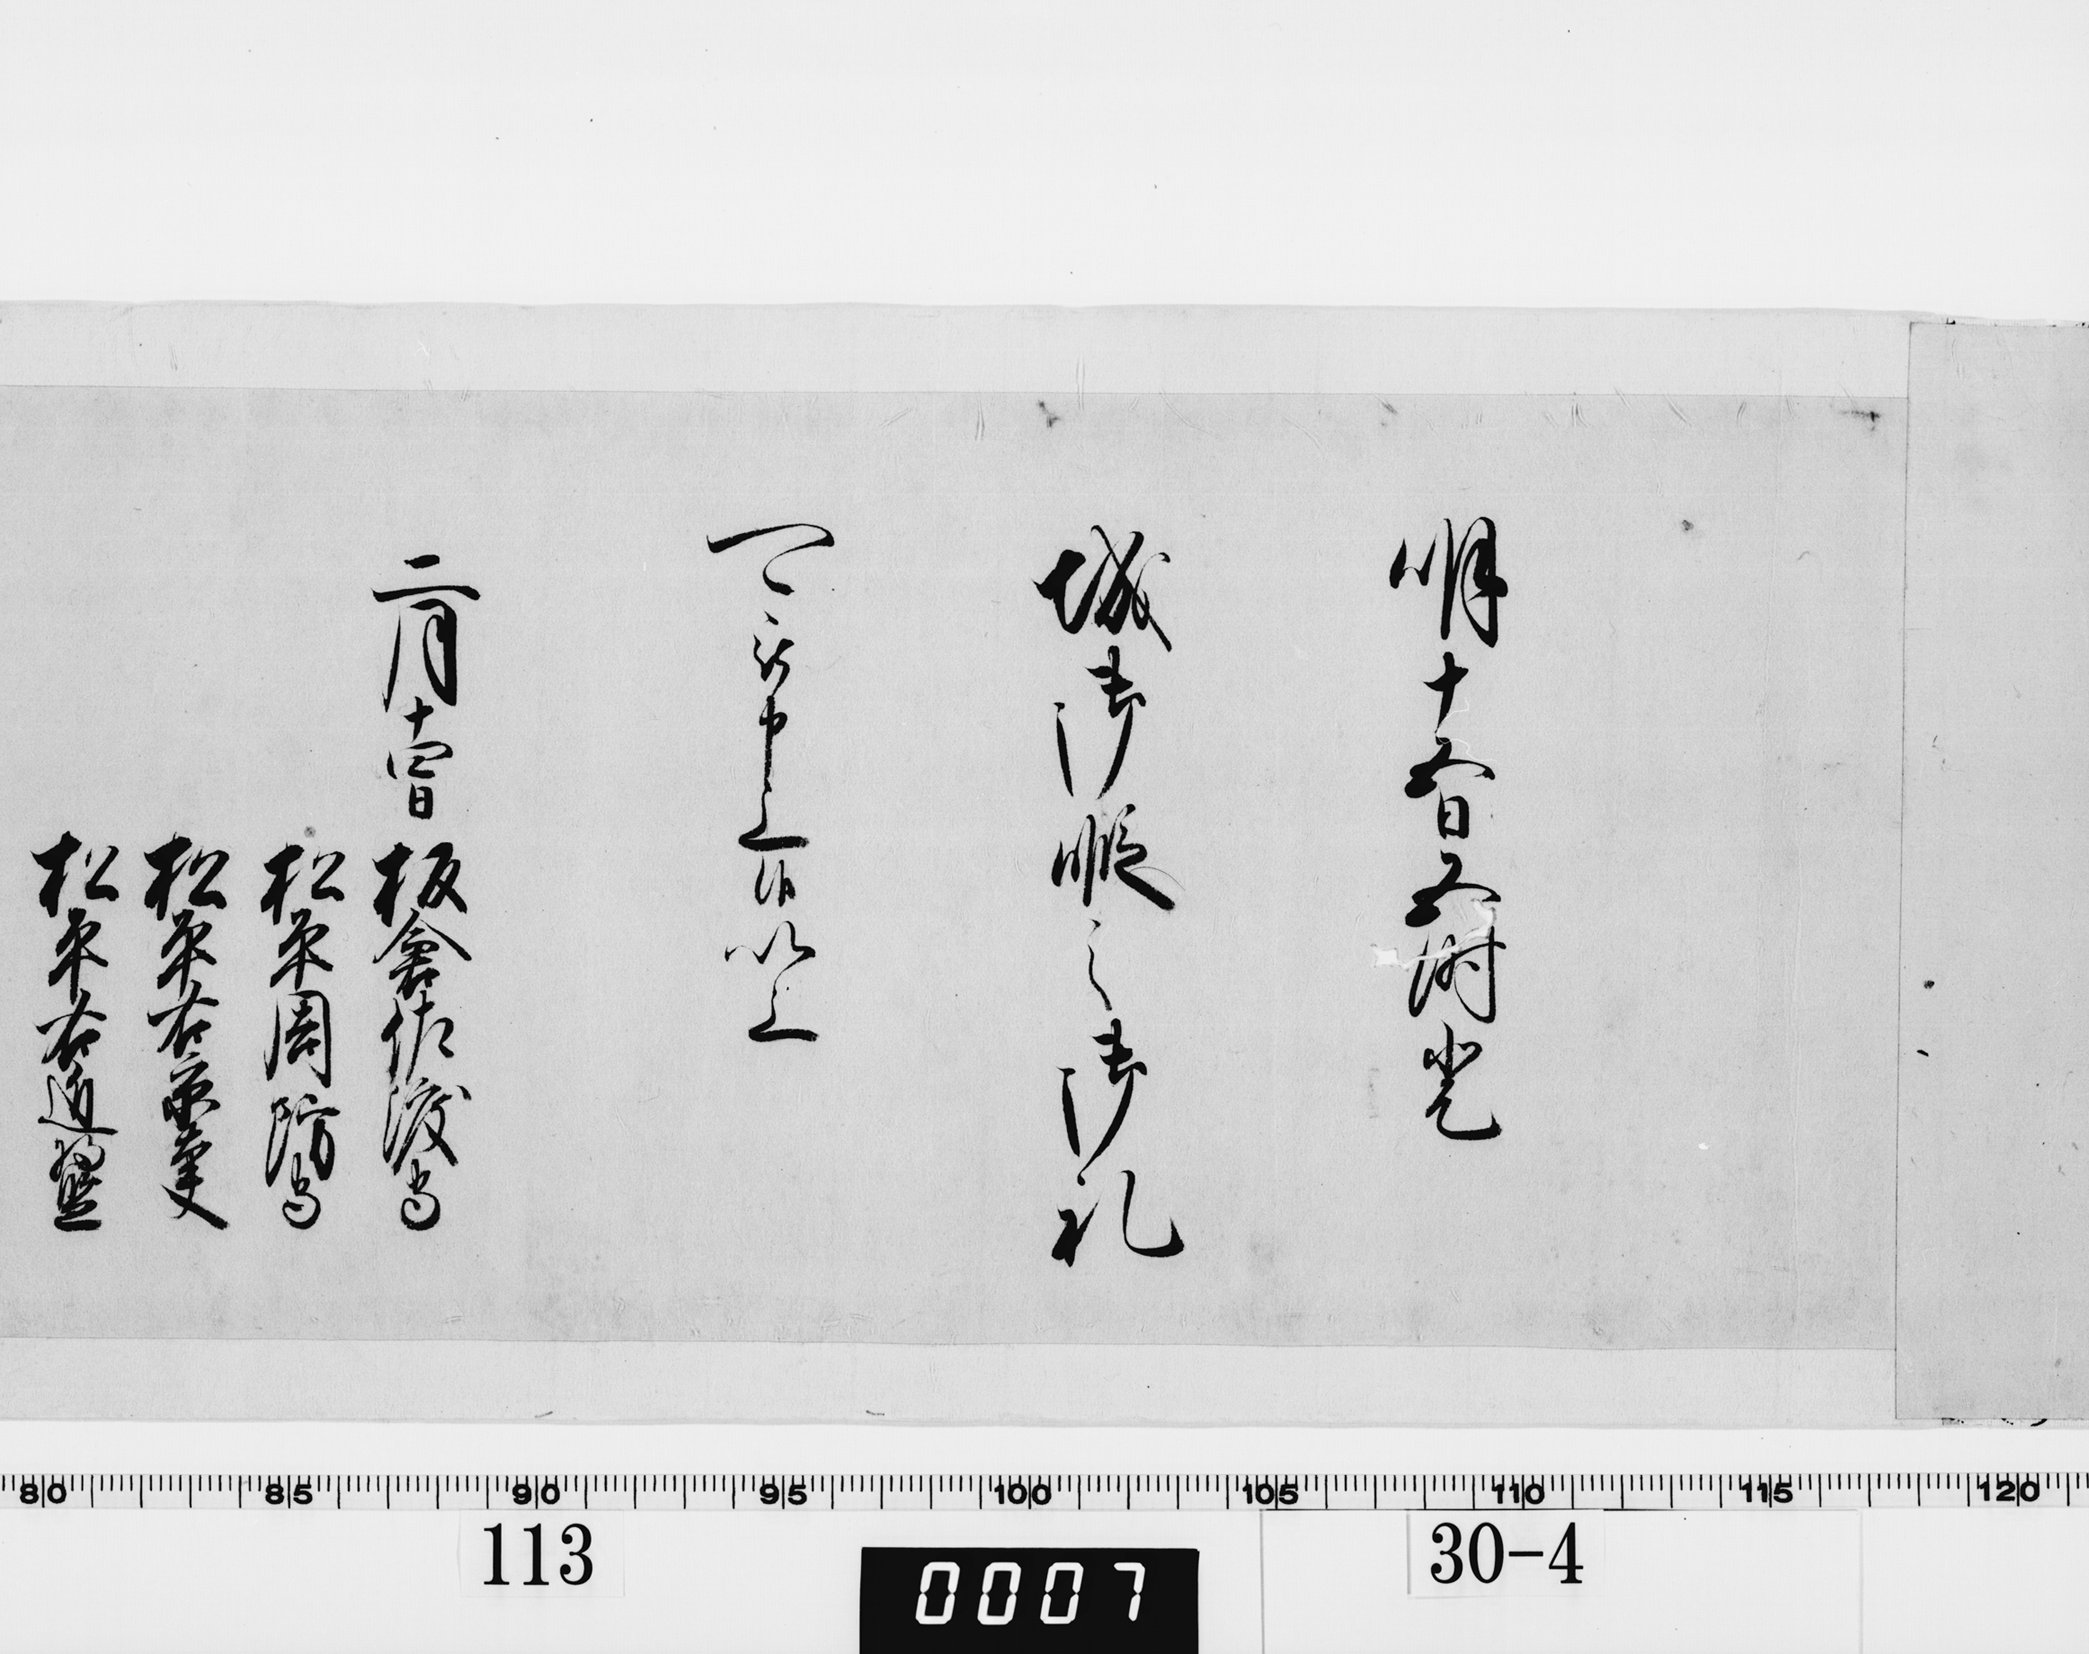 明十五日五時登
城御暇之御礼
可被申上候以上
二月十四日
板倉佐渡守
松平周防守
松平右京大夫
松平右近将監
80 85 90 95 100 105 110 115 120
113
0007
30-4